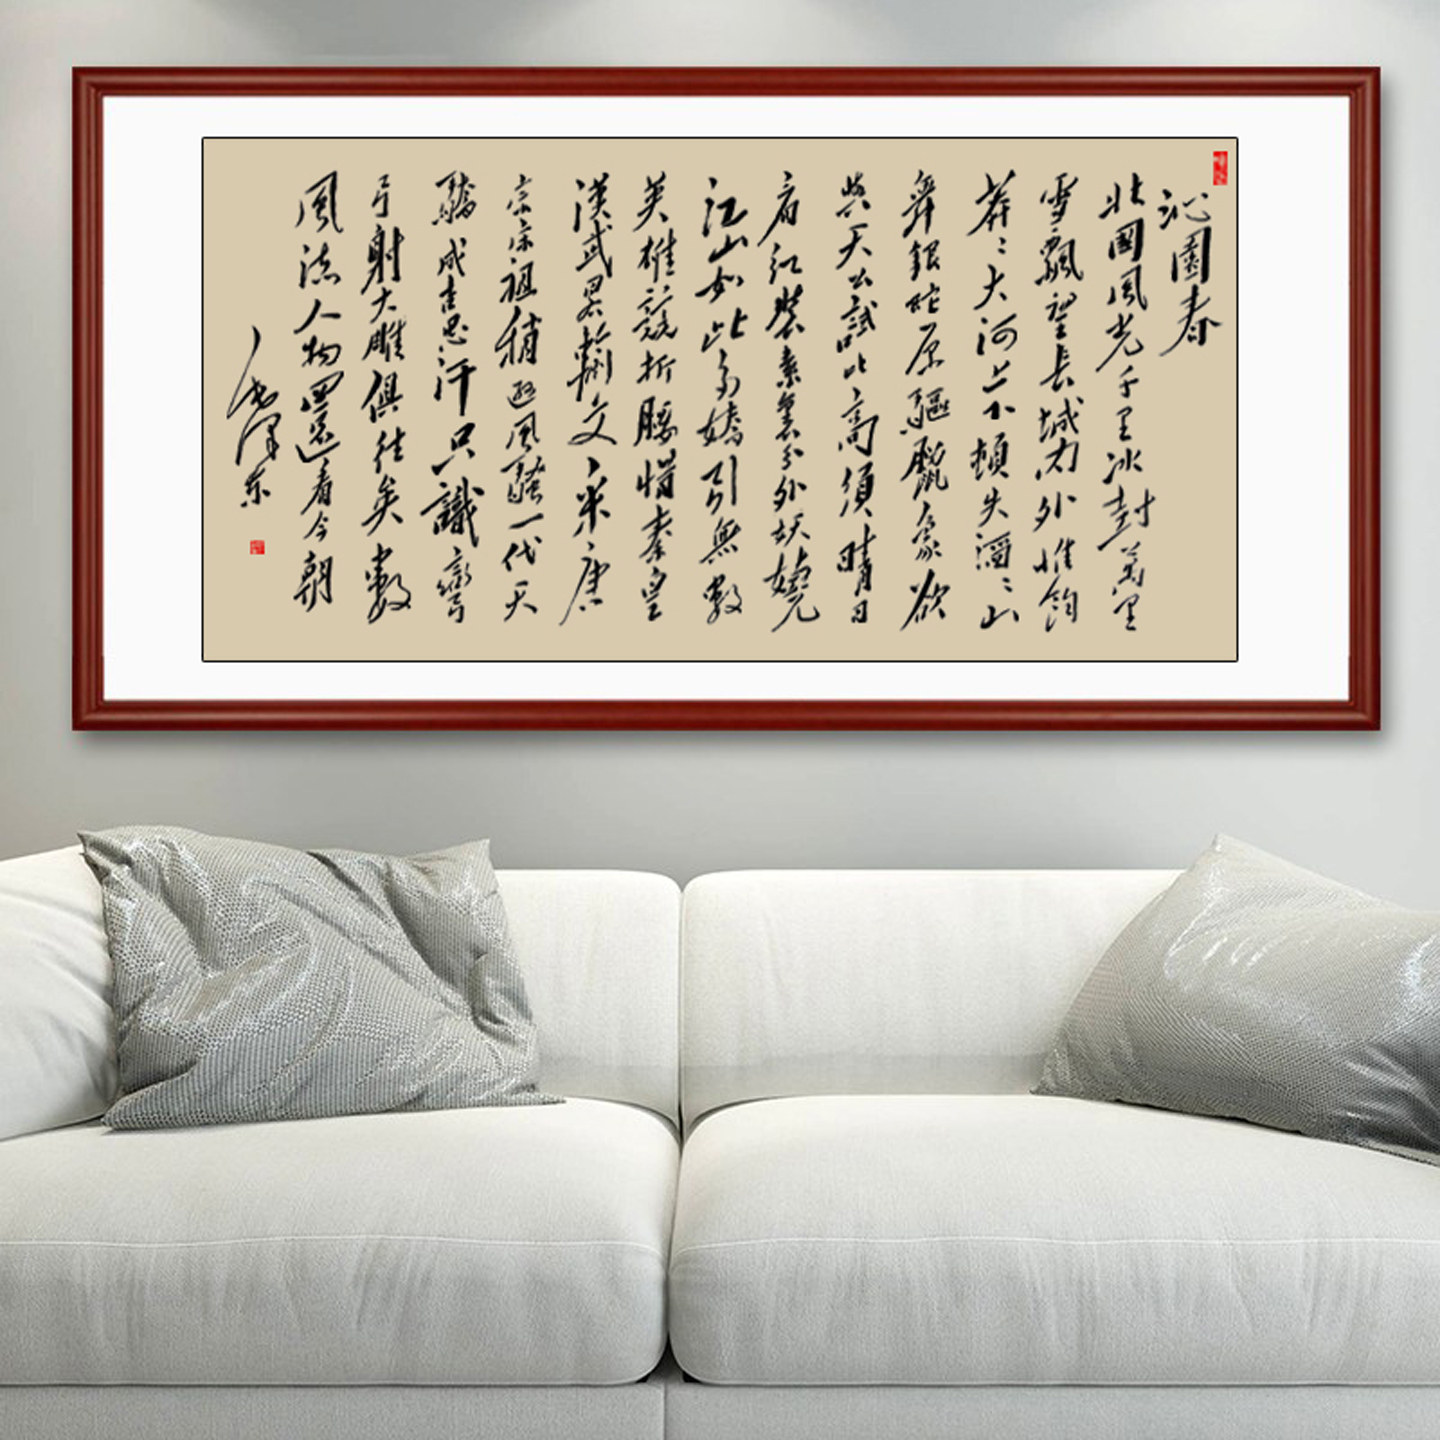 沁園春
北國風光千里冰封萬里
雪飄望長城內外惟餘
莽〻大河上下頓失滔〻山
舞銀蛇原驅臘象欲
與天公試比高須晴日
看紅裝素裹分外妖嬈
江山如此多嬌引無數
英雄競折腰惜秦皇
漢武略輸文采唐
宗宋祖稍遜風騷一代天
驕成吉思汗只識彎
弓射大雕俱往矣數
風流人物還看今朝
毛澤东